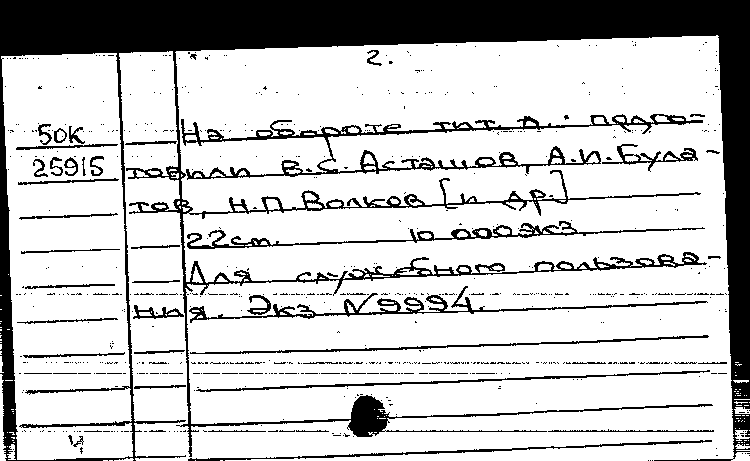 2.
50К На обороте тит. л.: подго=
25915 товили В.С.Асташов, А.И.Була-
тов, Н.П.Волков [и др.]
22см. 10 000экз.
Для служебного пользова-
ния. Экз N9994.
ч